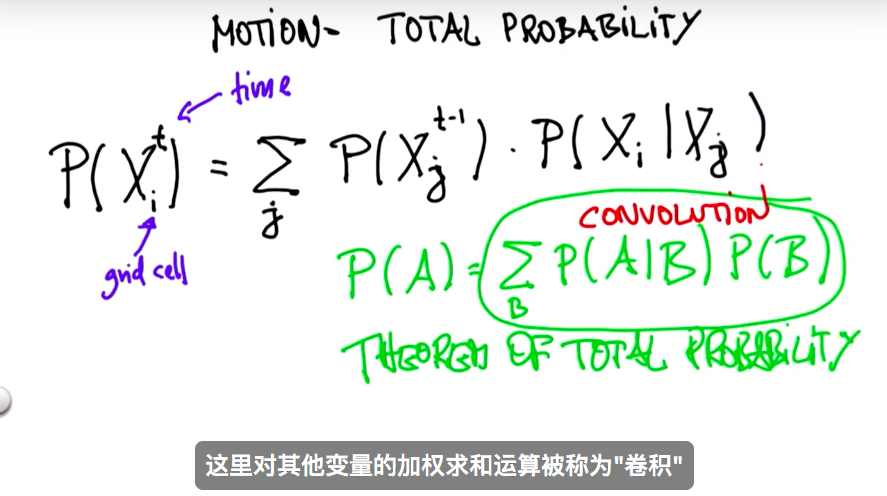 MOTION- TOTAL PROBABILITY
time
P(X_i^t) = Σ_j P(X_j^{t-1}) · P(X_i | X_j)
grid cell
CONVOLUTION
P(A) = Σ_B P(A|B) P(B)
THEOREM OF TOTAL PROBABILITY
这里对其他变量的加权求和运算被称为"卷积"